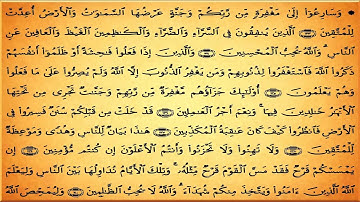 ۞ وَسَارِعُوٓا۟ إِلَىٰ مَغْفِرَةٍ مِّن رَّبِّكُمْ وَجَنَّةٍ عَرْضُهَا ٱلسَّمَٰوَٰتُ وَٱلْأَرْضُ أُعِدَّتْ
لِلْمُتَّقِينَ ٱلَّذِينَ يُنفِقُونَ فِى ٱلسَّرَّآءِ وَٱلضَّرَّآءِ وَٱلْكَٰظِمِينَ ٱلْغَيْظَ وَٱلْعَافِينَ عَنِ
ٱلنَّاسِ ۗ وَٱللَّهُ يُحِبُّ ٱلْمُحْسِنِينَ وَٱلَّذِينَ إِذَا فَعَلُوا۟ فَٰحِشَةً أَوْ ظَلَمُوٓا۟ أَنفُسَهُمْ
ذَكَرُوا۟ ٱللَّهَ فَٱسْتَغْفَرُوا۟ لِذُنُوبِهِمْ وَمَن يَغْفِرُ ٱلذُّنُوبَ إِلَّا ٱللَّهُ وَلَمْ يُصِرُّوا۟ عَلَىٰ مَا فَعَلُوا۟
وَهُمْ يَعْلَمُونَ أُو۟لَٰٓئِكَ جَزَآؤُهُم مَّغْفِرَةٌ مِّن رَّبِّهِمْ وَجَنَّٰتٌ تَجْرِى مِن تَحْتِهَا
ٱلْأَنْهَٰرُ خَٰلِدِينَ فِيهَا ۚ وَنِعْمَ أَجْرُ ٱلْعَٰمِلِينَ قَدْ خَلَتْ مِن قَبْلِكُمْ سُنَنٌ فَسِيرُوا۟ فِى
ٱلْأَرْضِ فَٱنظُرُوا۟ كَيْفَ كَانَ عَٰقِبَةُ ٱلْمُكَذِّبِينَ هَٰذَا بَيَانٌ لِّلنَّاسِ وَهُدًى وَمَوْعِظَةٌ
لِّلْمُتَّقِينَ وَلَا تَهِنُوا۟ وَلَا تَحْزَنُوا۟ وَأَنتُمُ ٱلْأَعْلَوْنَ إِن كُنتُم مُّؤْمِنِينَ إِن
يَمْسَسْكُمْ قَرْحٌ فَقَدْ مَسَّ ٱلْقَوْمَ قَرْحٌ مِّثْلُهُۥ ۚ وَتِلْكَ ٱلْأَيَّامُ نُدَاوِلُهَا بَيْنَ ٱلنَّاسِ وَلِيَعْلَمَ
ٱللَّهُ ٱلَّذِينَ ءَامَنُوا۟ وَيَتَّخِذَ مِنكُمْ شُهَدَآءَ ۗ وَٱللَّهُ لَا يُحِبُّ ٱلظَّٰلِمِينَ وَلِيُمَحِّصَ ٱللَّهُ